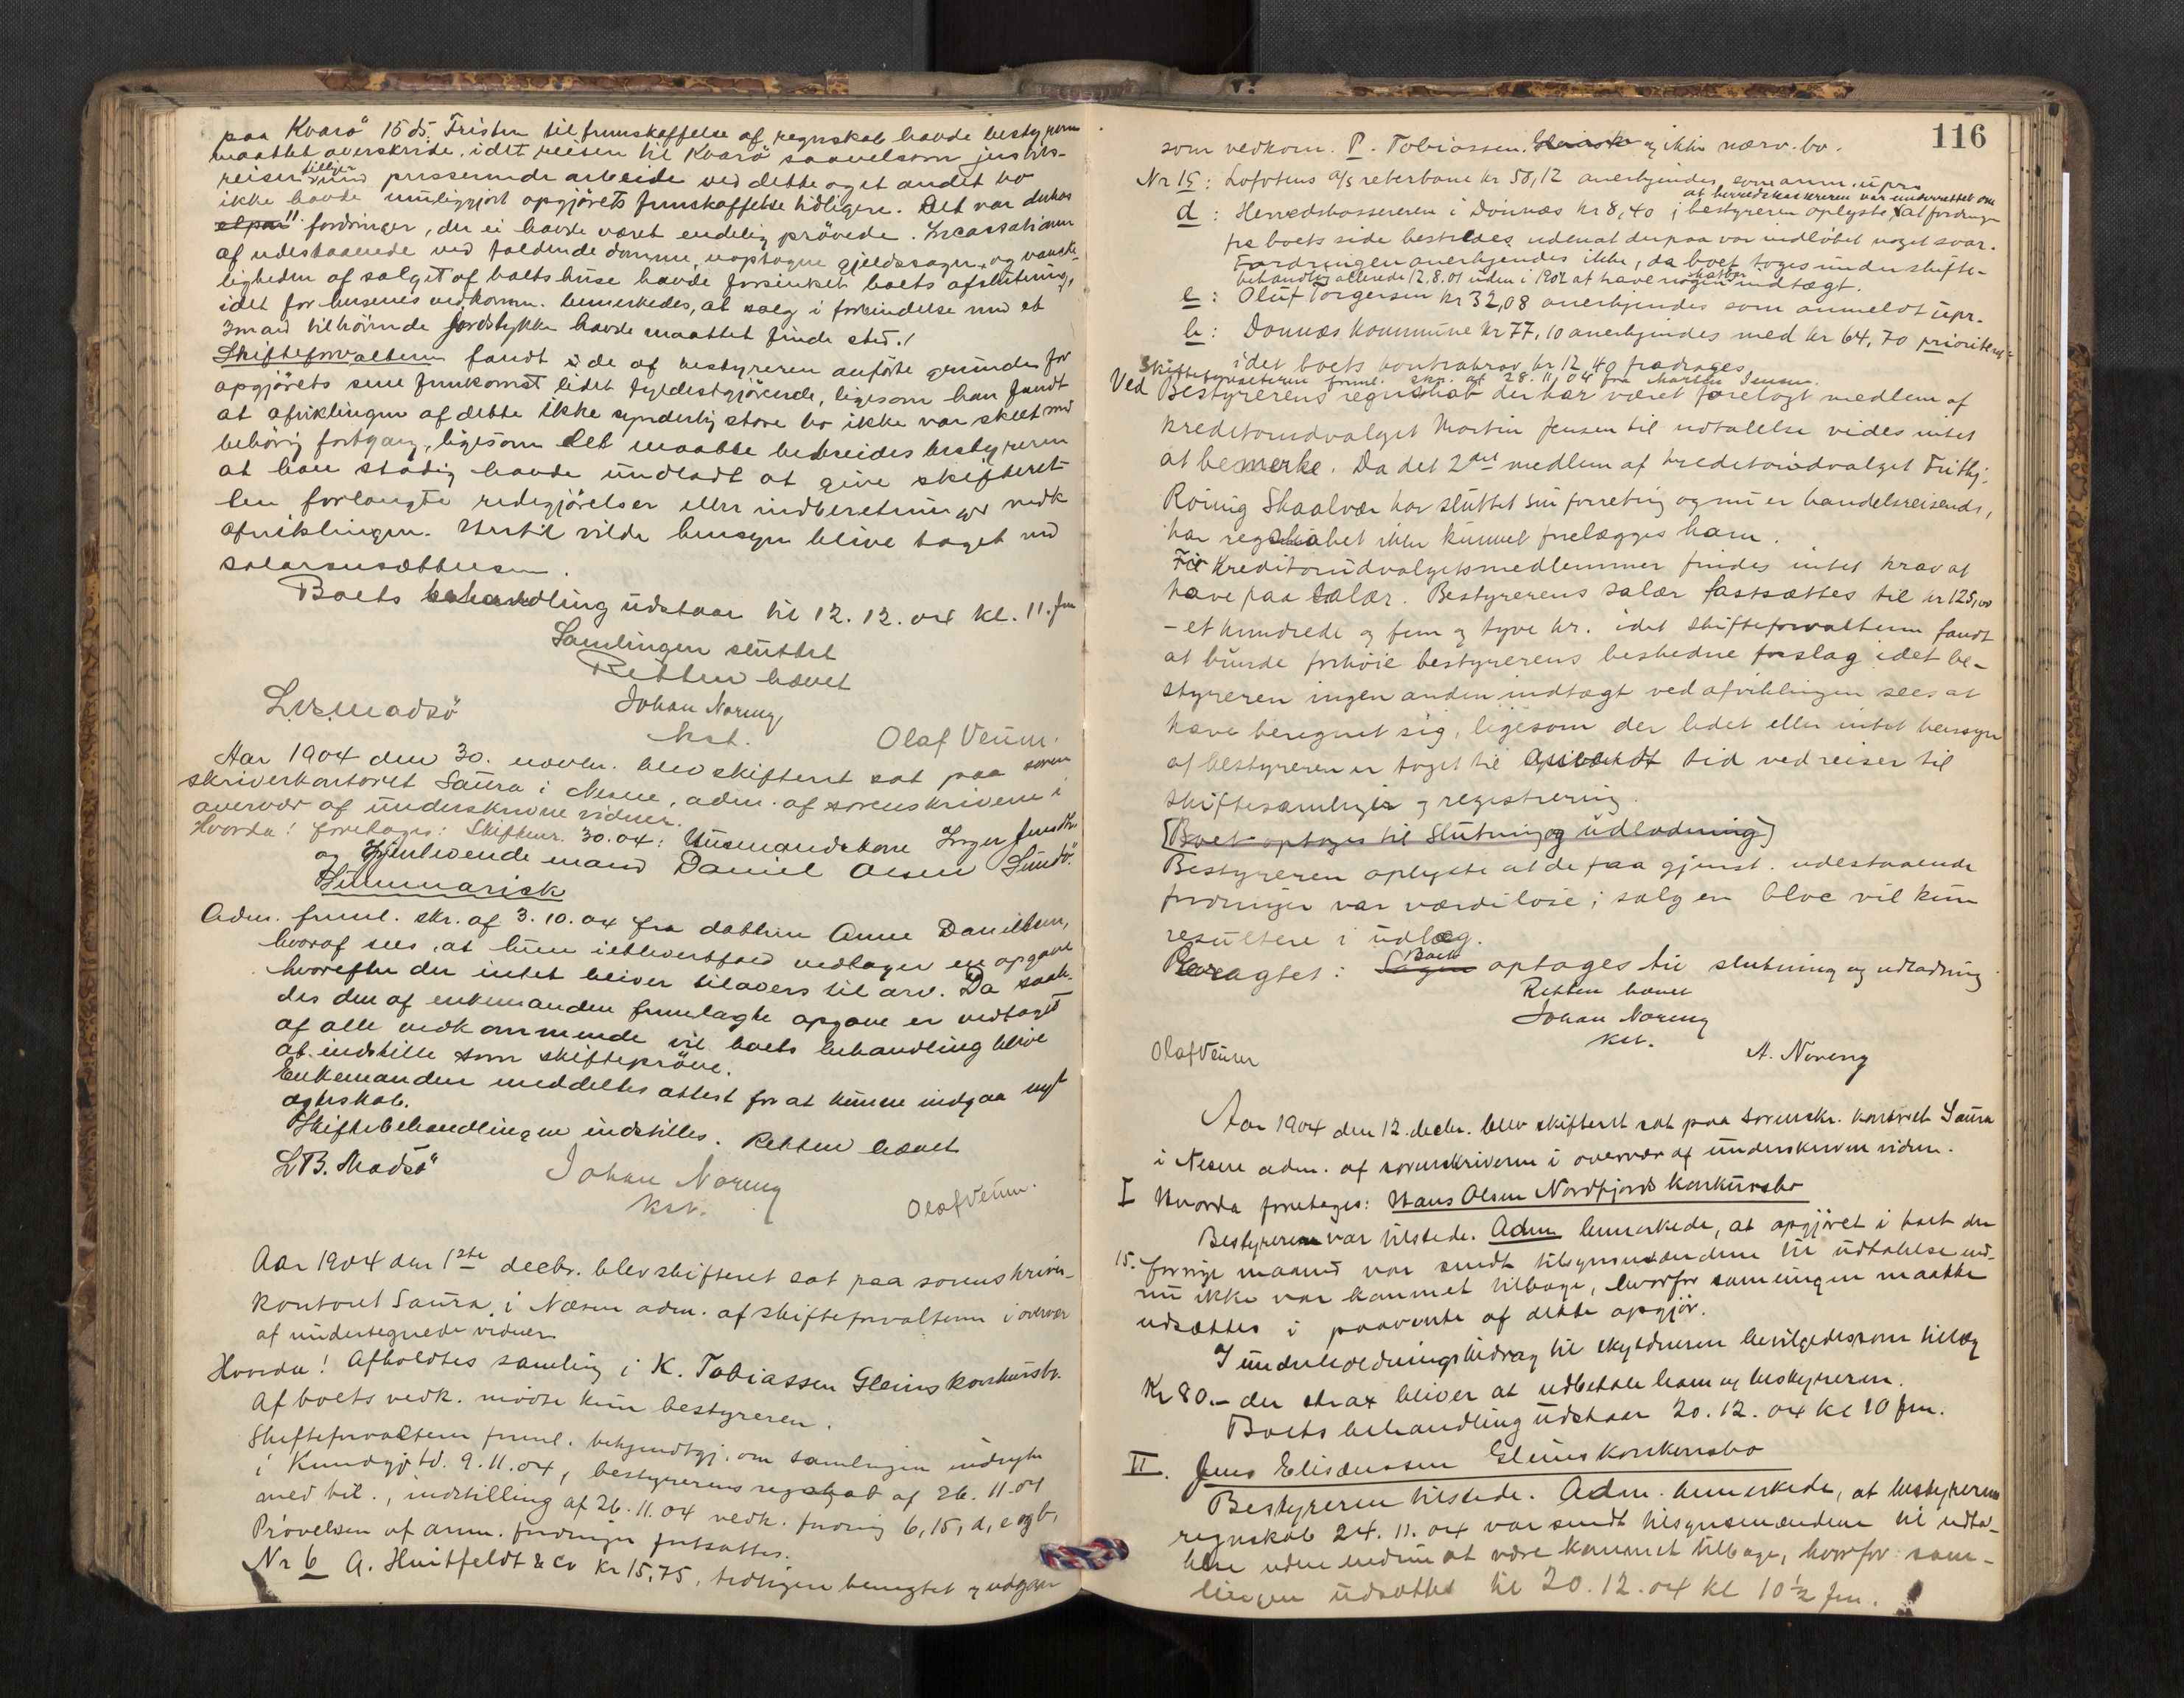 paa Kvarø 15 ds. Fristen til fremskaffelse af regnskab havde bestyreren
maattet overskride, idet reisen til Kvarø saavelsom justits-
reiser tilligemed presserende arbeide ved dette og et andet bo
ikke havde muliggjort opgjørets fremskaffelse tidligere. Det var
fordringer, der ei havde været endelig prøvede. Incassationen
af udestaaende ved faldende domme, uoptagne gjeldssager, og vanske-
ligheden af salget af boets huse havde forsinket boets afslutning,
idet for husenes vedkomm. bemerkedes, at salg i forbindelse med et
3mand tilhørende jordstykke havde maattet finde sted./
Skifteforvalteren fandt de af bestyreren anførte grunde for
opgjørets sene fremkomst lidet fyldestgjørende, ligesom han fandt
at afviklingen af dette ikke synderlig store bo ikke var skeet med
behørig fortgang, ligesom det maatte bebreides bestyreren
at han stadig havde undladt at give skifteret-
ten forlangte redegjørelser eller indberetninger vedk
afviklingen. Hertil vilde hensyn blive taget ved
salærsansættelsen.
Boets behandling udstaar til 12.12.04 kl. 11. fm
Samlingen sluttet
Retten hævet
L. B. Madsø Johan Noreng
kst. Olaf Veum.
Aar 1904 den 30. novbr. blev skifteret sat paa soren
skriverkontoret Saura i Nesne, adm. af sorenskriveren i
overvær af underskrevne vidner.
Hvorda! foretages: Skiftenr. 30.04: Husmandskone Inger Jensdtr
og gjenlevende mand Daniel Olsen Sundø.
Summarisk
Adm. freml. skr. af 3.10.04 fra datteren Anne Danielsen,
hvoraf sees, at hun i et og alt vedtager en opgave
hvorefter der intet bliver tilovers til arv. Da saale
des den af enkemanden fremlagte opgave er vedtaget
af alle vedkommende vil boets behandling blive
at indstille som skifteprøve.
Enkemanden meddeltes attest for at kunne indgaa nyt
egteskab.
Skiftebehandlingen indstilles. Retten hævet
L B. Madsø Johan Noreng
kst. Olaf Veum.
Aar 1904 den 1ste decbr. blev skifteret sat paa sorenskriver-
kontoret Saura i Næsne adm. af skifteforvalteren i overvær
af undertegnede vidner
Hvorda! Afholdtes samling i K. Tobiassen Gleins konkursbo.
Af boets vedk. mødte kun bestyreren.
Skifteforvalteren freml. bekjendtgj. om samlingen indrykt
i Kundgj. td. 9.11.04, bestyrerens regskab af 26.11.04
med bil., indstilling af 26.11.04 vedk. fordring 6, 15, d, e og h,
Prøvelsen af anm. fordringer fortsattes.
Nr 6 A. Huitfeldt & Co Kr 15,75, tidligere benegtet og udgaar
116
som vedkom. P. Tobiassen. Gleinsk og ikke nærv. bo.
Nr 15: Lofotens A/S reberbane kr 58,12 anerkjendes som anm. upr.
at herredskassereren var underrettet om
d: Herredskassereren i Dønnæs kr 8,40 ; bestyreren oplyste at fordringen
fra boets side bestrides uden at derpaa var indløbet noget svar.
Fordringen anerkjendes ikke, da boet toges under skifte-
behandling allerede 12.8.01 uden i 1902 at have nogen skatbar indtægt.
e: Oluf Torgersen kr 32,08 anerkjendes som anmeldt upr.
h: Dønnæs kommune kr 77,10 anerkjendes med kr 64,70 prioriteret
idet boets kontrakrav kr 12,40 fradrages.
Skifteforvalteren freml. skr. af 28.11.04 fra Martin Jensen.
Ved Bestyrerens regnskab der har været forelagt medlem af
kreditorudvalget Martin Jensen til udtalelse vides intet
at bemerke. Da det 2det medlem af kreditorudvalget Frithj.
Röring Skaalvær har sluttet sin forretning og nu er handelsreisende,
har regnskabet ikke kunnet forelægges ham.
For Kreditorudvalgetsmedlemmer findes intet krav at
have paa salær. Bestyrerens salær fastsættes til kr 125,00
- et hundrede og fem og tyve kr. idet skifteforvalteren fandt
at burde forhøie bestyrerens beskedne forslag idet be-
styreren ingen anden indtægt ved afviklingen sees at
have beregnet sig, ligesom der lidet eller intet hensyn
af bestyreren er taget til anvendt tid ved reiser til
skiftesamlinger og registrering.
[Boet optoges til Slutning og udlodning]
Bestyreren oplyste at de paa gjenst. udestaaende
fordringer var værdiløse; salg en bloc vil kun
resultere i udlæg.
Boet
Paaagtet: Sagen optages til slutning og udlodning
Retten hævet
Johan Noreng
kst.
Olaf Veum A. Noreng
Aar 1904 den 12. decbr. blev skifteret sat paa sorenskr. kontoret Saura
i Nesne adm. af sorenskriveren i overvær af underskrevne vidner.
I Hvorda foretages: Hans Olsen Nordfjords konkursbo
Bestyreren var tilstede. Adm bemerkede, at opgjøret i boet den
15. forrige maaned var sendt tilsynsmændene til udtalelse end-
nu ikke var kommet tilbage, hvorfor samlingen maatte
udsættes i paavente af dette opgjør.
I underholdningsbidrag til skyldneren bevilgedes som tillæg
Kr 80.- der strax bliver at udbetale ham og bestyreren.
Boets behandling udstaar 20.12.04 kl 10 fm.
II. Jens Elisæussen Gleins konkursbo
Bestyreren tilstede. Adm. bemerkede, at bestyrerens
regnskab 24.11.04 var sendt tilsynsmændene til udta-
lelse uden endnu at være kommet tilbage, hvorfor sam-
lingen udsattes til 20.12.04 kl 10 1/2 fm.